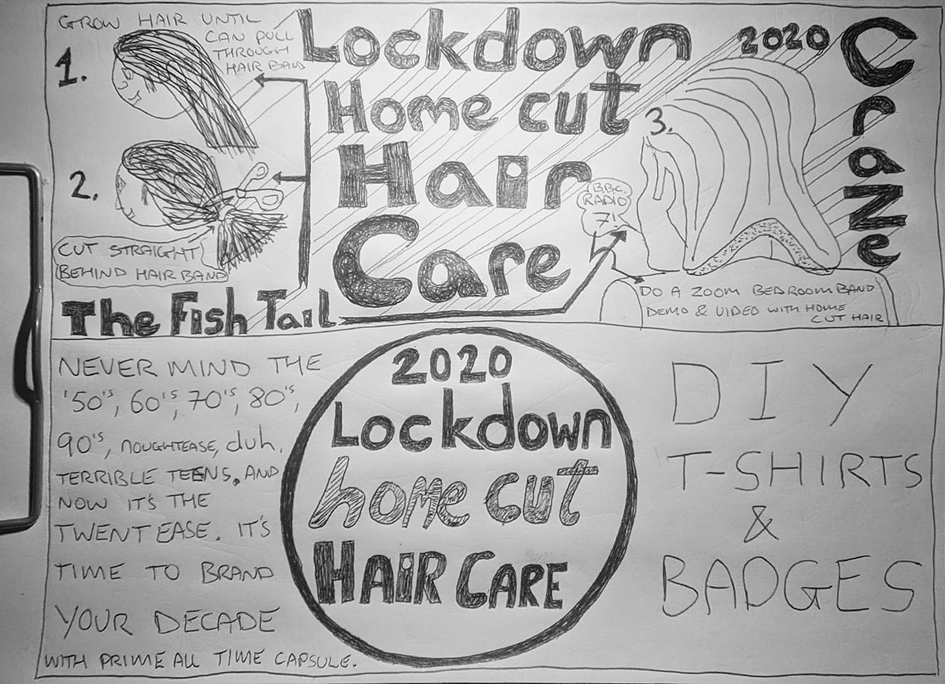 GROW HAIR UNTIL
CAN PULL
THROUGH
HAIR BAND
1.
2.
CUT STRAIGHT
BEHIND HAIR BAND
The Fish Tail
Lockdown
Home cut
Hair
Care
2020
CraZe
3.
BBC
RADIO
71
DO A ZOOM BEDROOM BAND
DEMO & VIDEO WITH HOME
CUT HAIR
NEVER MIND THE
'50'S, 60'S, 70'S, 80'S,
90'S, NOUGHTEASE, duh,
TERRIBLE TEENS, AND
NOW IT'S THE
TWENT EASE. IT'S
TIME TO BRAND
YOUR DECADE
WITH PRIME ALL TIME CAPSULE.
2020
Lockdown
home cut
HAiR CARE
DIY
T-SHIRTS
&
BADGES